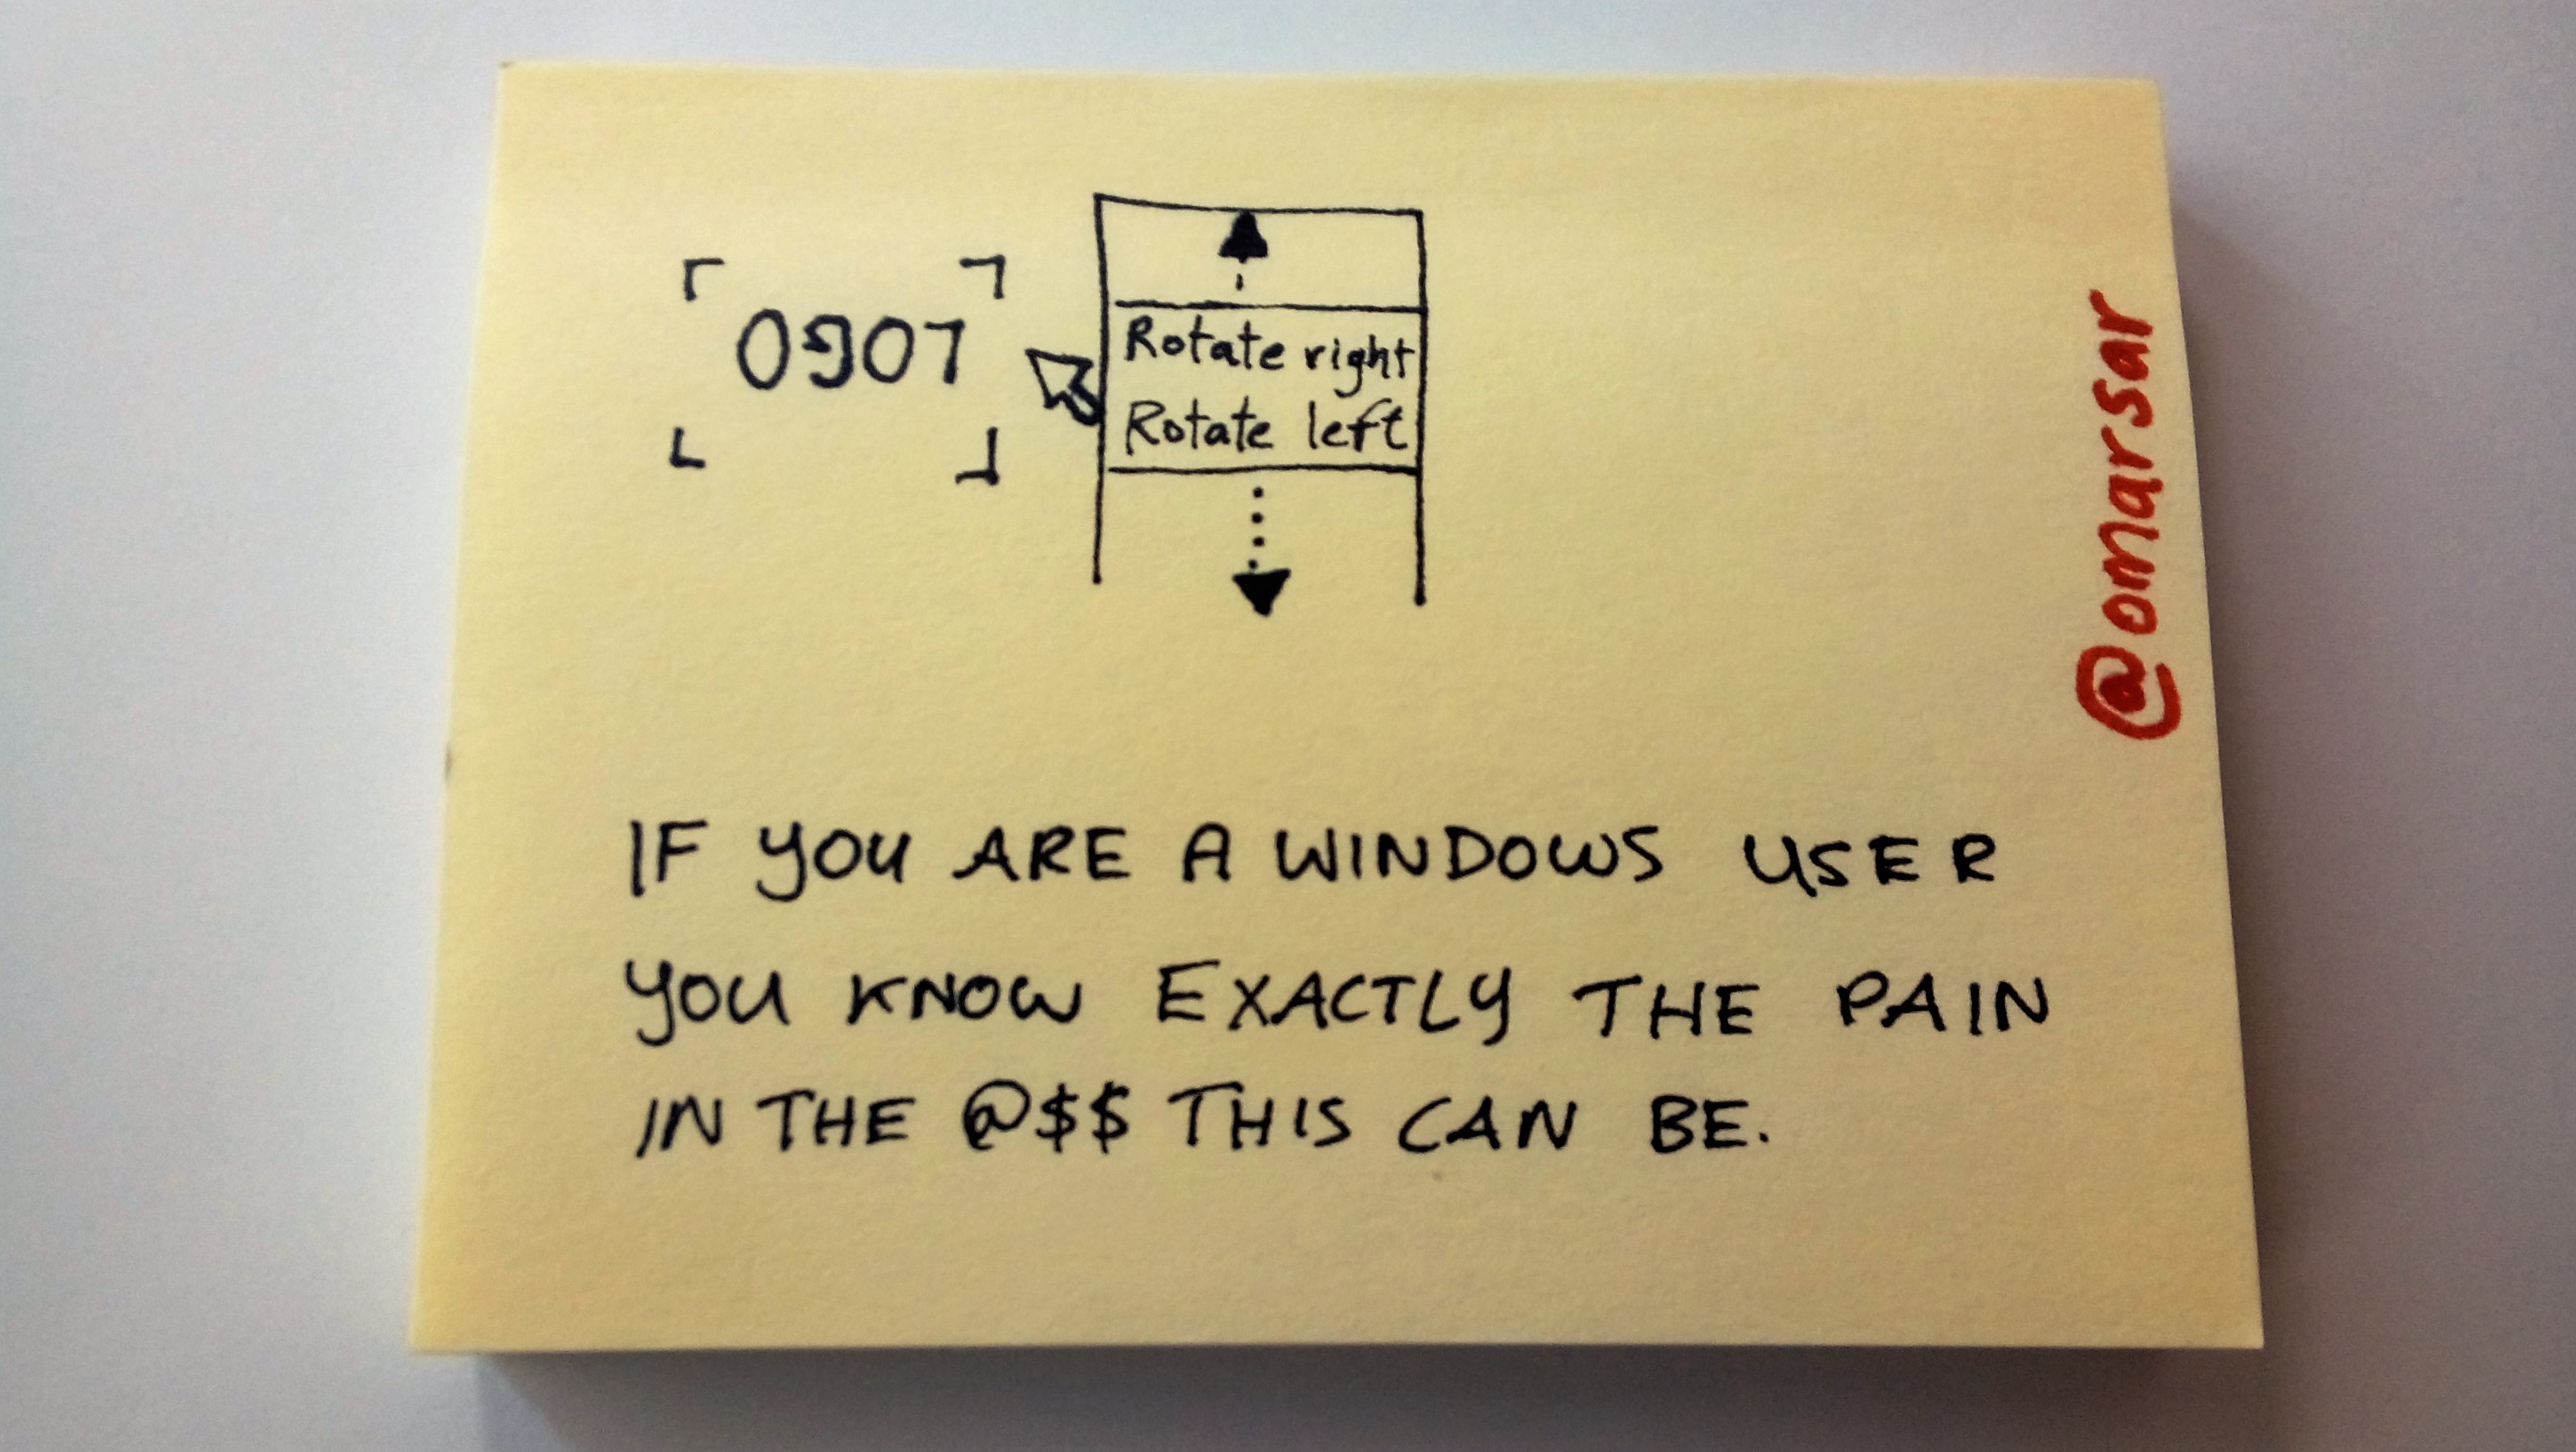 LOGO
Rotate right
Rotate left
@omarsar
IF YOU ARE A WINDOWS USER
YOU KNOW EXACTLY THE PAIN
IN THE @$$ THIS CAN BE.